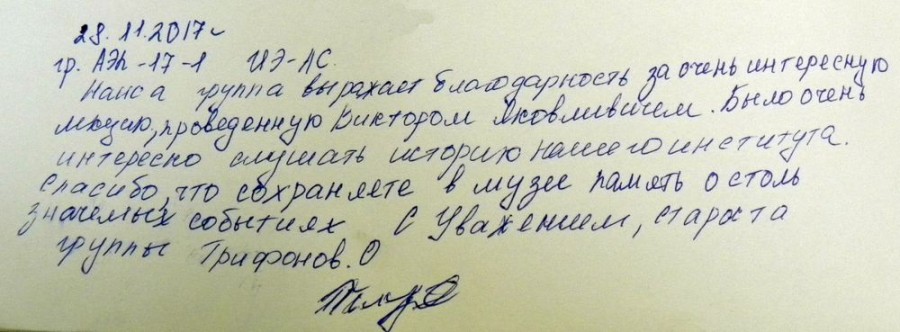 28.11.2017г
гр. АЭп-17-1 ИЭ-АС.
Наша группа выражает благодарность за очень интересную
лекцию, проведенную Виктором Яковливичем. Было очень
интересно слушать историю нашего института.
Спасибо, что сохраняете в музее память о столь
значемых событиях С Уважением, староста
группы Трифонов.О